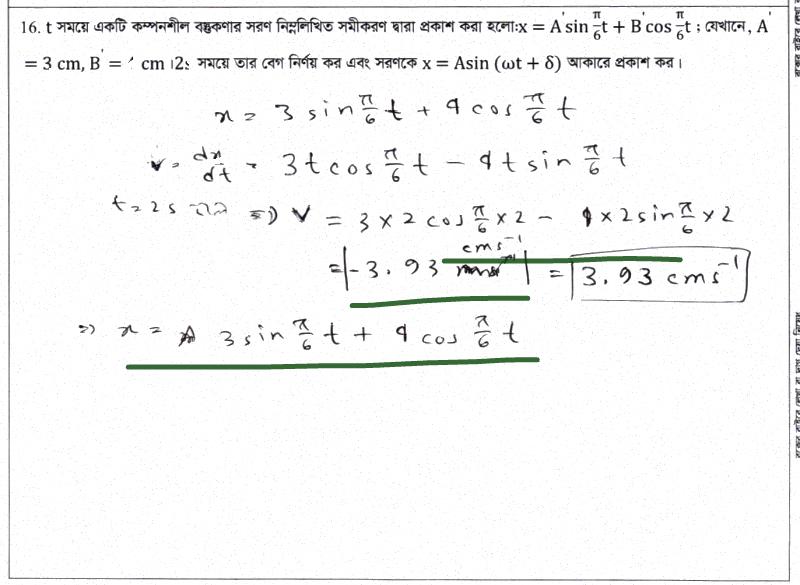 16. t সময়ে একটি কম্পনশীল বস্তুকণার সরণ নিম্নলিখিত সমীকরণ দ্বারা প্রকাশ করা হলো:x = A' sin π/6 t + B' cos π/6 t ; যেখানে, A'
= 3 cm, B' = cm ।2s সময়ে তার বেগ নির্ণয় কর এবং সরণকে x = Asin (ωt + δ) আকারে প্রকাশ কর।
x = 3 sin π/6 t + 4 cos π/6 t
v = dx/dt = 3t cos π/6 t − 4t sin π/6 t
t = 2s হলে ⇒ v = 3 × 2 cos π/6 × 2 − 4 × 2 sin π/6 × 2
= |-3.93 cms⁻¹| = 3.93 cms⁻¹
⇒ x = 3 sin π/6 t + 4 cos π/6 t